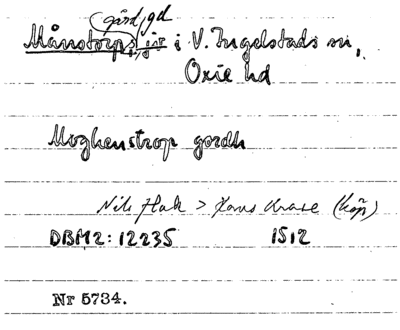 gård, gd
Månstorps, gjr i V. Ingelstads sn,
Oxie hd
Moghenstrop gordh
Nils Hak > Hans Krase (köp)
DBM2: 12235 1512
Nr 5734.